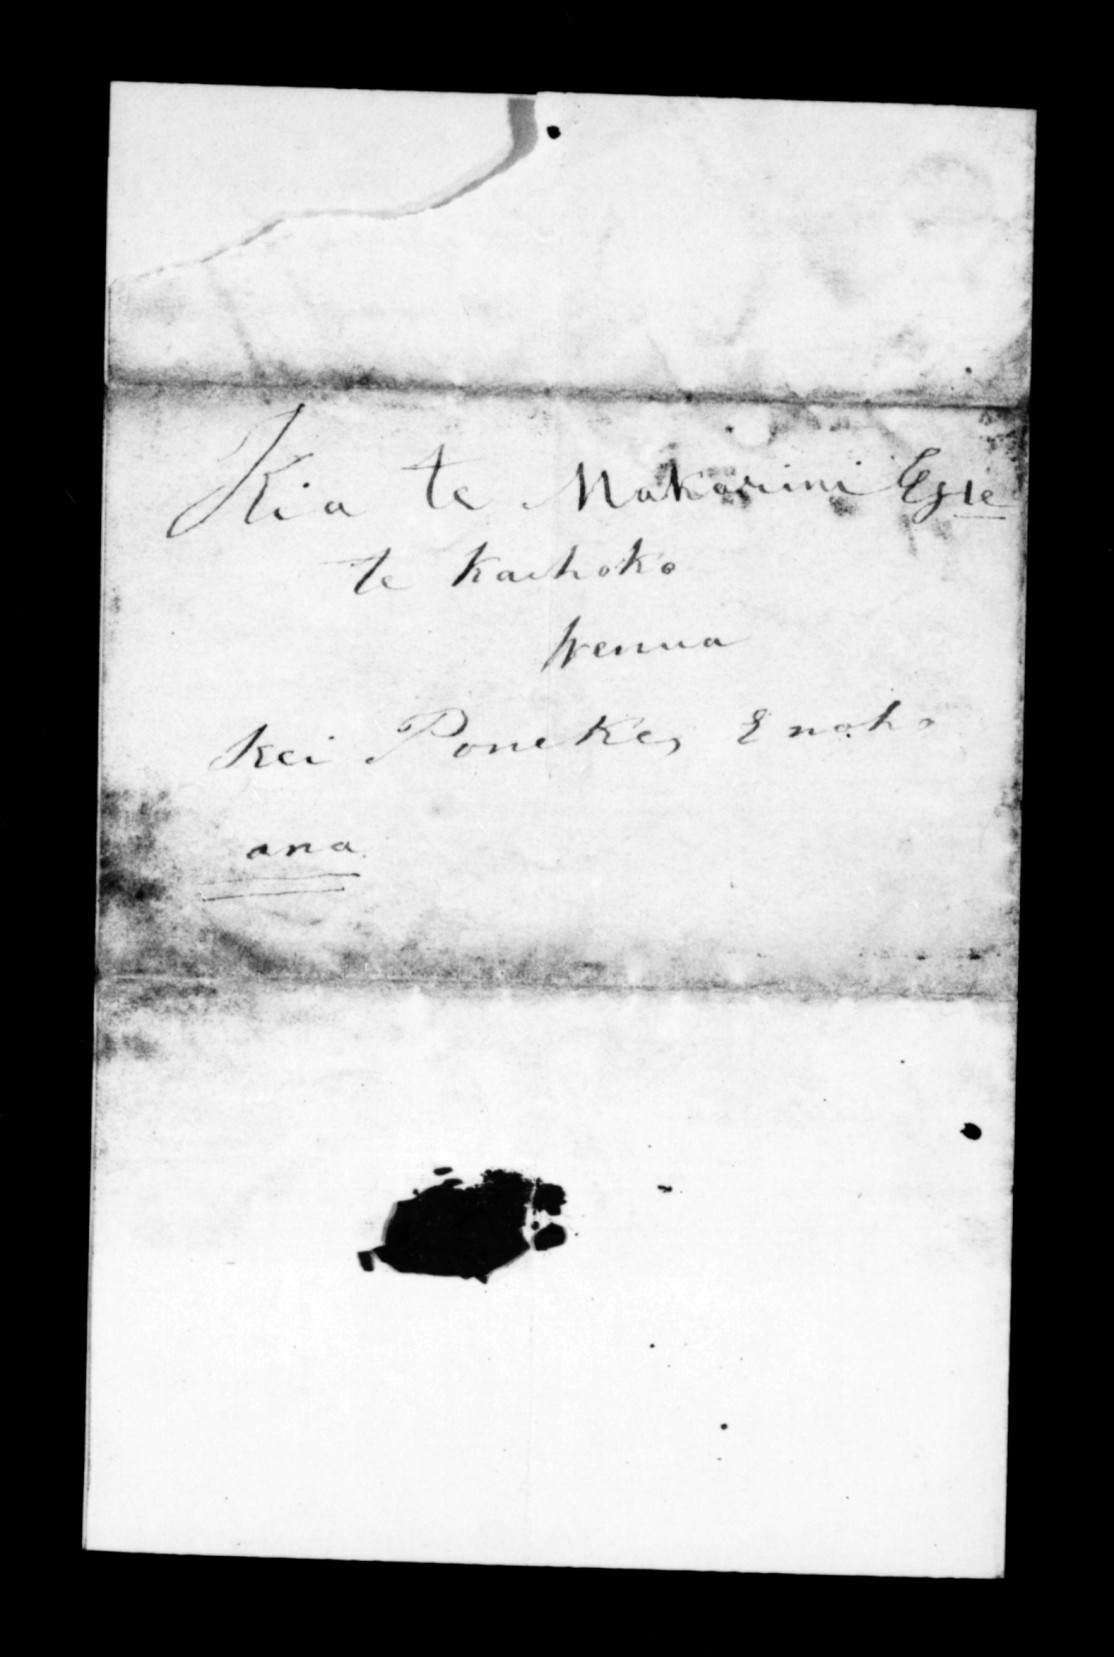 Kia te Makarini Esqre
te kaihoko
wenua
kei Poneke, E noho
ana